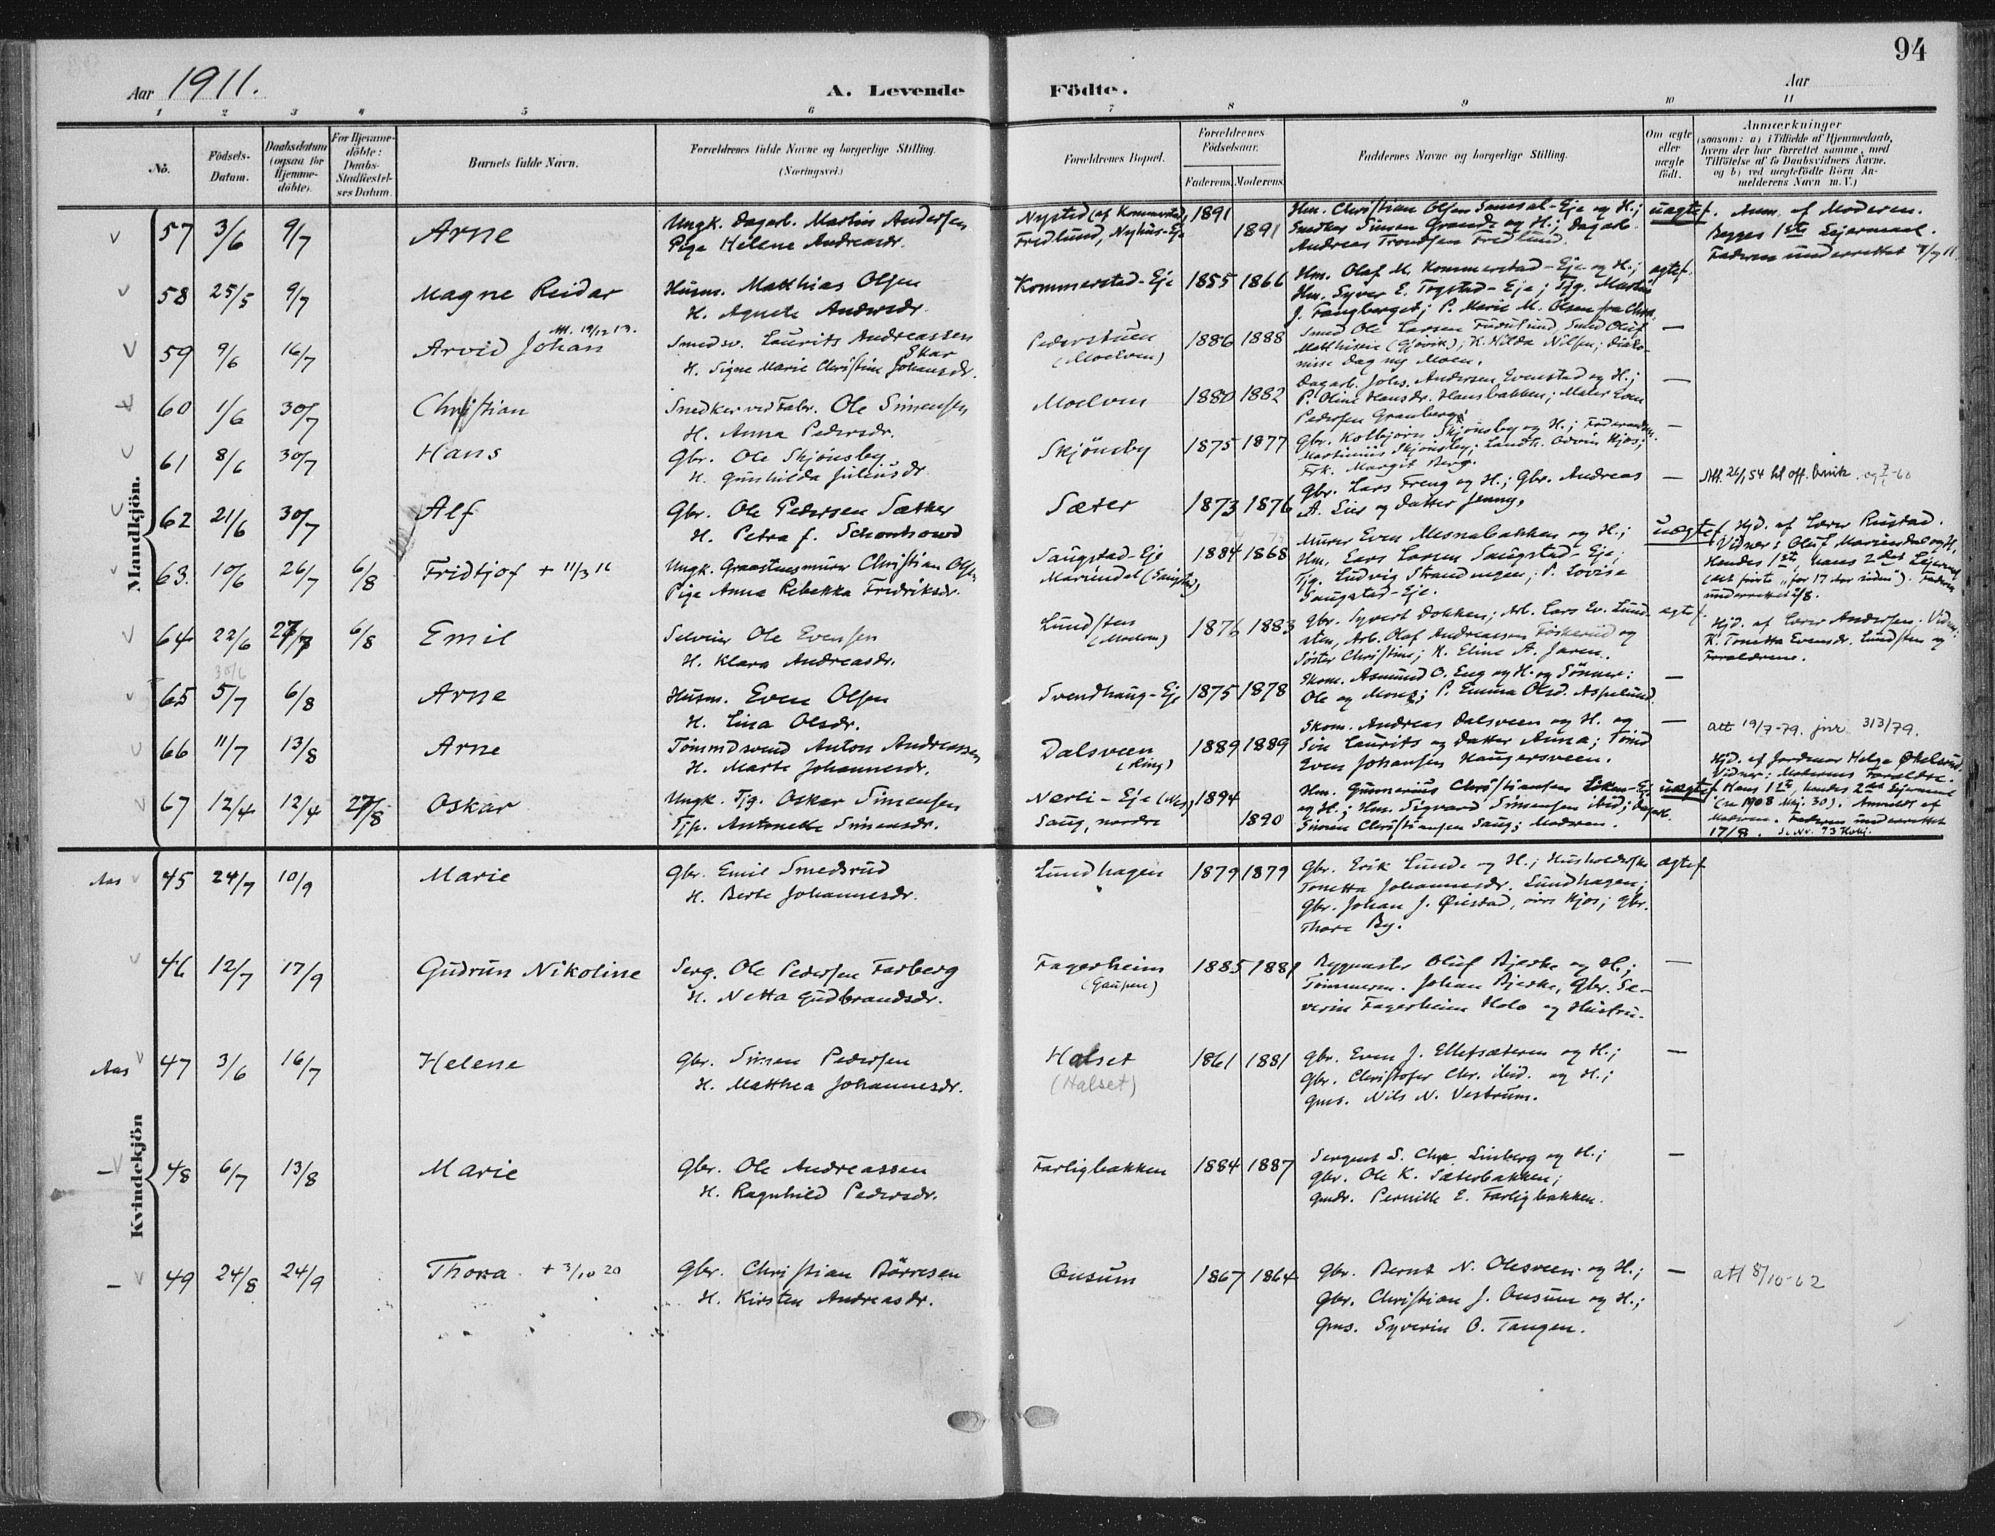 94
Aar 1911. A. Levende Födte. Aar
1 2 3 4 5 6 7 8 9 10 11
No.
Födsels-Datum.
Daabsdatum (ogsaa for Hjemmedöbte).
For Hjemmedöbte: Daabs-Stadfæstelses Datum.
Barnets fulde Navn.
Forældrenes fulde Navne og borgerlige Stilling.
(Næringsvei.)
Forældrenes Bopæl.
Forældrenes Födselsaar.
Faderens. Moderens.
Faddernes Navne og borgerlige Stilling.
Om ægte eller uægte födt.
Anmærkninger
(saasom: a) i Tilfælde af Hjemmedaab, hvem der har forrettet samme, med Tilföielse af to Daabsvidners Navne, og b) ved uægtefödte Börn Anmelderens Navn m. V.)
Mandkjön.
57 3/6 9/7 Arne
Ungk. Dagarb. Martin Andersen
Pige Helene Andreasdr.
Nysted (af Kommerstad)
Fredlund, Nyhus-Eje
1891 1891
Hm. Christian Olsen -Eje og H.;
Snedker Simen og H.; Dagarb.
Andreas Trondsen Fredlund.
uægtef. Anm. af Moderen.
Begges 1ste Lejermaal.
Faderen underrettet
58 25/5 9/7 Magne Reidar
Husm. Matthias Olsen
H. Agnete Andersdr.
Kommerstad-Eje 1855 1866
Hm. Olaf M. Kommerstad-Eje og H.;
Hm. Syver E. Togstad-Eje; Tjg. Martin
J. Fangberget; P. Marie M. Olsen fra Chra.
ægtef.
59 9/6 16/7 Arvid Johan
Att. 19/12 13.
Smedsv. Laurits Andreassen
Skar
H. Signe Marie Christine Johansdr.
Pederstuen
(Moelven)
1886 1888
Smed Ole Larsen Smed Oluf
Matthisen (Gjøvik); K. Hilda Nilsen; Diako-
nisse Dagny Moen.
—
60 1/6 30/7 Christian
Snedker ved Fabr. Ole Simensen
H. Anna Pedersdr.
Moelven 1880 1882
Dagarb. Johs. Andersen Evenstad og H.;
P. Oline Hansdr. Hansbakken; Maler
Pedersen Granberg;
—
61 8/6 30/7 Hans
Gbr. Ole Skjønsby
H. Gunhilda Juliusdr.
Skjønsby 1875 1877
Gbr. Kolbjørn Skjønsby og H.; Føderaadsm.
Martinius Skjønsby; Landh. Kjos;
Frk. Margit Berg.
—
62 21/6 30/7 Alf
Gbr. Ole Pedersen Sæther
H. Petra f.
Sæter 1873 1876
Gbr. Lars Freng og H.; Gbr. Andreas
A. Lier og Datter Jenny.
—
Att. 26/1 54 til off. bruk.
63. 10/6 26/7 6/8 Fridtjof + 11/3 16
Ungk. Graastensmurer Christian Olsen
Pige Anna Rebekka Fredriksdr.
Saugstad-Eje
Mariendal (Saugstad)
1884 1868
Murer Even Mesnabakken og H.;
Hm. Lars Larsen Saugstad-Eje;
Tjg. Ludvig Strandengen; P. Lovise
Saugstad-Eje.
uægtef.
Hjd. af Lærer Rustad.
Vidner: Oluf Mariendal og H.
Hendes 1ste, hans 2det Lejermaal
(det første "for 17 Aar siden"). Faderen
underrettet /8.
64 22/6 27/7 6/8 Emil
Selveier Ole Evensen
H. Klara Andreasdr.
Lundsten
(Moelven)
1876 1883
Gbr. Syvert Dokken; Arb. Lars Ev. Lund-
sten, Arb. Olaf Andreassen og
Søster Christine; K. Eline A. Jaren.
ægtef.
Hjd. af Lærer Andersen. Vidner:
K. Tonetta Evensdr. Lundsten og
Forældrene.
30/6
65 5/7 6/8 Arne
Husm. Even Olsen
H. Lina Olsdr.
Svendhaug-Eje 1875 1878
Skom. Asmund O. Eng og H. og Sønner:
Ole og Mons; P. Emma Olsd. Aspelund.
—
66 11/7 13/8 Arne
Tømmdsvend Anton Andreassen
H. Marte Johannesdr.
Dalsveen
(Ring)
1889 1889
Skom. Andreas Dalsveen og H. og
Søn Laurits og Datter Anna; Tømd
Even Johansen Haugersveen.
—
att 19/7-79. jnr. 313/79.
67 12/4 12/4 27/8 Oskar
Ungk. Tjg. Oskar Simensen
Tjp. Antonette Simensdr.
Nærli-Eje (Nes)
Saug, nordre
1894 1890
Hm. Gunnerius Christiansen -Eje
og H.; Hm. Sigvard Simensen ibid; Dagarb.
Simen Christiansen Saug; Moderen.
uægtef.
Hjd. af Jordmor Helga
Vidner: Moderens Forældre.
Hans 1ste, hendes 2det Lejermaal
(se 1908 Mkj. 30). Anmeldt af
Moderen. Faderen underrettet
17/8.
Kvindekjön
Aas 45 24/7 10/9 Marie
Gbr. Emil Smedsrud
H. Berte Johannesdr.
Lundhagen 1879 1879
Gbr. Erik Lunde og H.; Husholderske
Tonetta Johannesdr. Lundhagen;
Gbr. Johan J. Øiestad, Kjos; Gbr.
Thore By.
ægtef.
46 12/7 17/9 Gudrun Nikoline
Serg. Ole Pedersen Farberg
H. Netta Gudbrandsdr.
Fagerheim
(Gaupen)
1885 1881
Bygmester Oluf Bjerke og H.;
Tømmerm. Johan Bjerke, Gbr. Se-
verin Fagerheim Holo og Hustru.
—
Aas 47 3/6 16/7 Helene
Gbr. Simen Pedersen
H. Matthea Johannesdr.
Halset
(Halset)
1861 1881
Gbr. Even J. Elletsæteren og H.;
Gbr. Christofer Chr. ibid. og H.;
Gms. Nils N. Vestrum.
—
— 48 6/7 13/8 Marie
Gbr. Ole Andreassen
H. Ragnhild Pedersdr.
Farligbakken 1884 1887
Sergent S. Chr. Linberg og H.;
Gbr. Ole K. Sæterbakken;
Gmdr. Pernille E. Farligbakken.
—
— 49 24/8 24/9 Thora + 3/10 20
Gbr. Christian Börresen
H. Kirsten Andreasdr.
Onsum 1867 1864
Gbr. Bernt N. Olesveen og H.;
Gbr. Christian J. Onsum og H.;
Gms. Syverin O. Tangen.
—
att 8/10-62